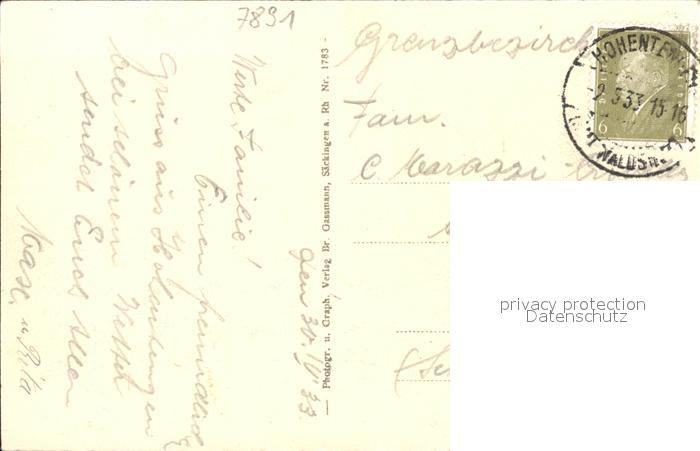 7891
Grenzbezirk
Fam.
C. Marazzi
HOHENTEN
2.5.33.15-16
WALDSH
6 6
— Photogr. u. Graph. Verlag Br. Gassmann, Säckingen a. Rh Nr. 1783 -
den 30. IV 33.
Werte Familie!
Einen freundlich
Gruss aus
bei schönem Wetter
sendet Euch allen
Max u Rita
privacy protection
Datenschutz